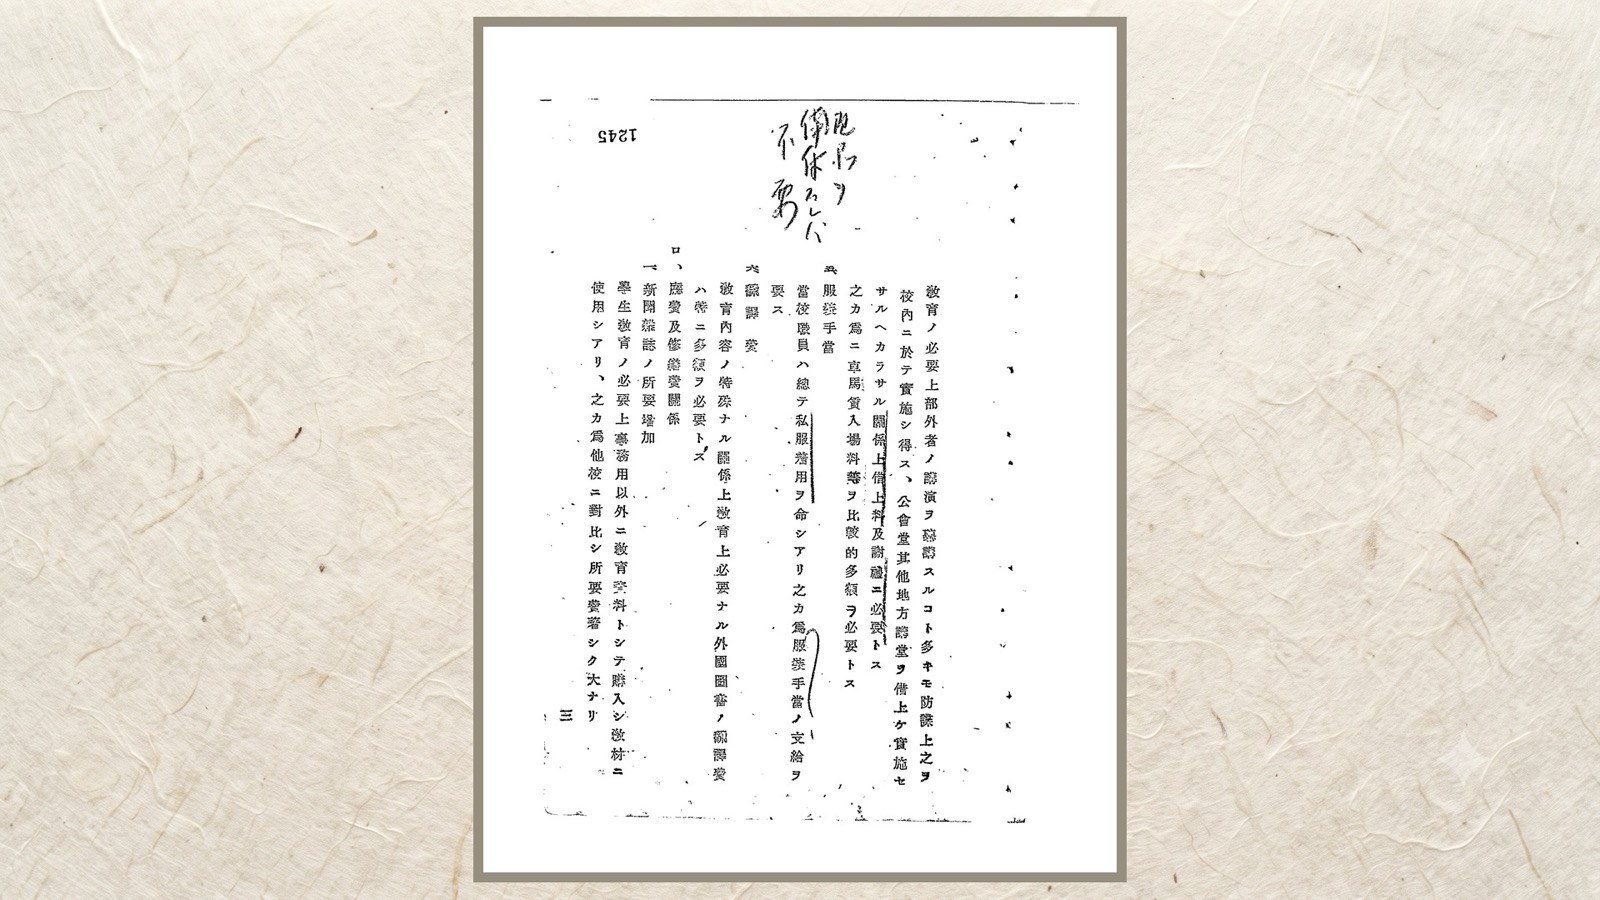 敎育ノ必要上部外者ノ講演ヲ聽講スルコト多キモ防諜上之ヲ
校內ニ於テ實施シ得ス、公會堂其他地方講堂ヲ借上ケ實施セ
サルヘカラサル關係上借上料及謝禮ニ必要トス
之カ爲ニ車馬賃入場料等ヲ比較的多額ヲ必要トス
五、服裝手當
當校職員ハ總テ私服着用ヲ命シアリ之カ爲服裝手當ノ支給ヲ
要ス
六、飜譯費
敎育內容ノ特殊ナル關係上敎育上必要ナル外國圖書ノ飜譯費
ハ特ニ多額ヲ必要トス
ロ、廳費及修繕費關係
一、新聞雜誌ノ所要增加
學生敎育ノ必要上事務用以外ニ敎育資料トシテ購入シ敎材ニ
使用シアリ、之カ爲他校ニ對比シ所要費著シク大ナリ
三
ヲ
スレバ
不要
1245